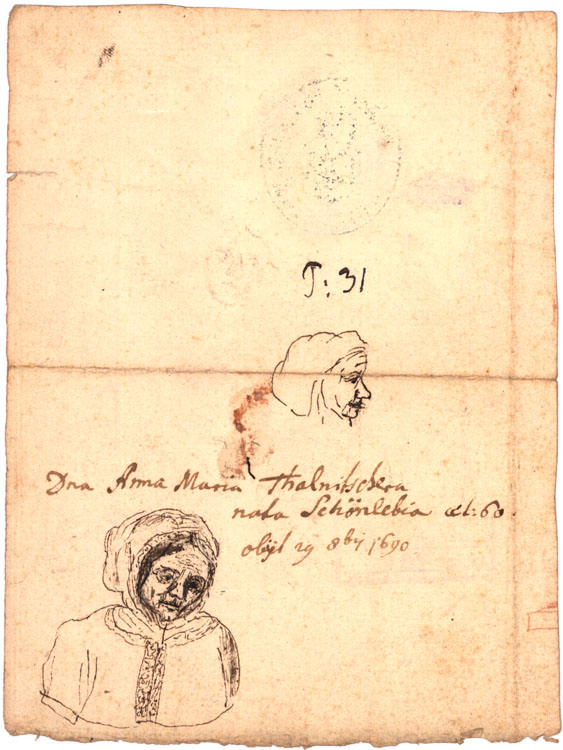 T: 31
Dna Anna Maria Thalnitscherа
nata Schönlebia æt: 60.
obijt 29 8bris 1690.